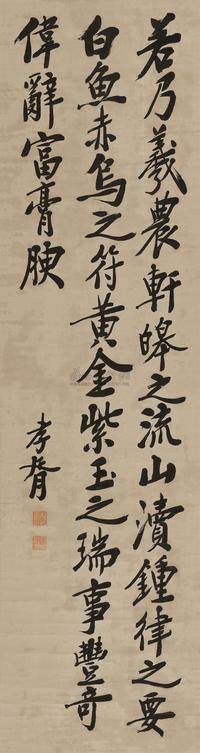 若乃羲農軒皞之流山瀆鍾律之要
白魚赤烏之符黃金紫玉之瑞事豐奇
偉辭富膏腴
孝胥